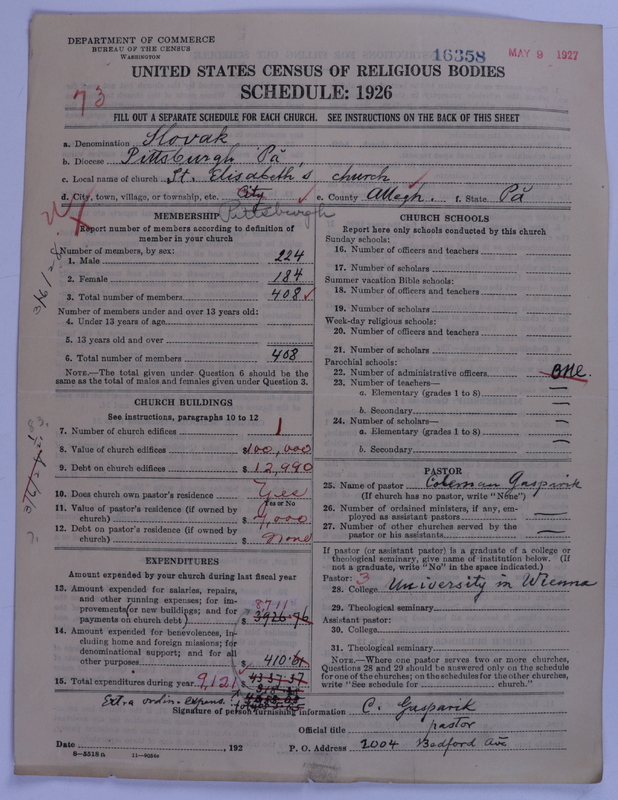 DEPARTMENT OF COMMERCE
BUREAU OF THE CENSUS
WASHINGTON
16358
MAY 9 1927
UNITED STATES CENSUS OF RELIGIOUS BODIES
SCHEDULE: 1926
73
FILL OUT A SEPARATE SCHEDULE FOR EACH CHURCH. SEE INSTRUCTIONS ON THE BACK OF THIS SHEET
a. Denomination Slovak
b. Diocese Pittsburgh Pa,
c. Local name of church St. Elisabeth's church
d. City, town, village, or township, etc. City e. County Allegh. f. State Pa
Pittsburgh
MEMBERSHIP
Report number of members according to definition of
member in your church
Number of members, by sex:
1. Male 224
2. Female 184
3. Total number of members 408
Number of members under and over 13 years old:
4. Under 13 years of age
5. 13 years old and over
6. Total number of members 408
NOTE.—The total given under Question 6 should be the
same as the total of males and females given under Question 3.
CHURCH BUILDINGS
See instructions, paragraphs 10 to 12
7. Number of church edifices 1
8. Value of church edifices $100,000
9. Debt on church edifices $12,990
10. Does church own pastor's residence Yes
Yes or No
11. Value of pastor's residence (if owned by
church) $
12. Debt on pastor's residence (if owned by
church) $ None
EXPENDITURES
Amount expended by your church during last fiscal year
13. Amount expended for salaries, repairs,
and other running expenses; for im-
provements (or new buildings; and for
payments on church debt) $ 3926.96
8711
14. Amount expended for benevolences, in-
cluding home and foreign missions; for
denominational support; and for all
other purposes $ 410.61
15. Total expenditures during year 9,121 $ 4337.57
Extra ordin. expens.
CHURCH SCHOOLS
Report here only schools conducted by this church
Sunday schools:
16. Number of officers and teachers
17. Number of scholars
Summer vacation Bible schools:
18. Number of officers and teachers
19. Number of scholars
Week-day religious schools:
20. Number of officers and teachers
21. Number of scholars
Parochial schools:
22. Number of administrative officers one
23. Number of teachers—
a. Elementary (grades 1 to 8) —
b. Secondary —
24. Number of scholars—
a. Elementary (grades 1 to 8) —
b. Secondary —
PASTOR
25. Name of pastor Coleman Gasparik
(If church has no pastor, write "None")
26. Number of ordained ministers, if any, em-
ployed as assistant pastors —
27. Number of other churches served by the
pastor or his assistants —
If pastor (or assistant pastor) is a graduate of a college or
theological seminary, give name of institution below. (If
not a graduate, write "No" in the space indicated.)
Pastor: 3
28. College University in Wienna
29. Theological seminary
Assistant pastor:
30. College
31. Theological seminary
NOTE.—Where one pastor serves two or more churches,
Questions 28 and 29 should be answered only on the schedule
for one of the churches; on the schedules for the other churches,
write "See schedule for church."
Signature of person furnishing information C. Gasparik
Official title pastor
Date , 192 P. O. Address 2004 Bedford Ave
8-5518a 11-9056